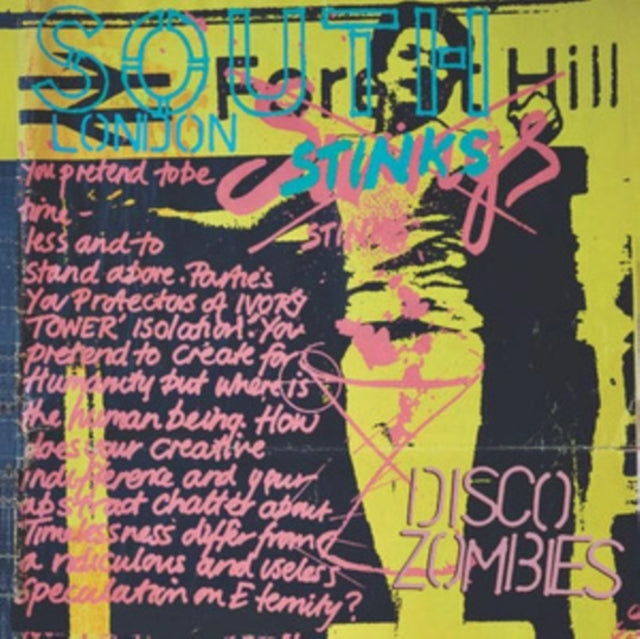 SOUTH
LONDON
Hill
STINKS
STINKS
You pretend to be
time-
less and to
stand above. Pourtie's
You Protectors of IVORY
TOWER' isolation. You
pretend to create for
Humanity but where is
the human being. How
does your creative
indifference and your
abstract chatter about
Timelessness differ from
a ridiculous and useless
speculation on Eternity?
DISCO
ZOMBIES